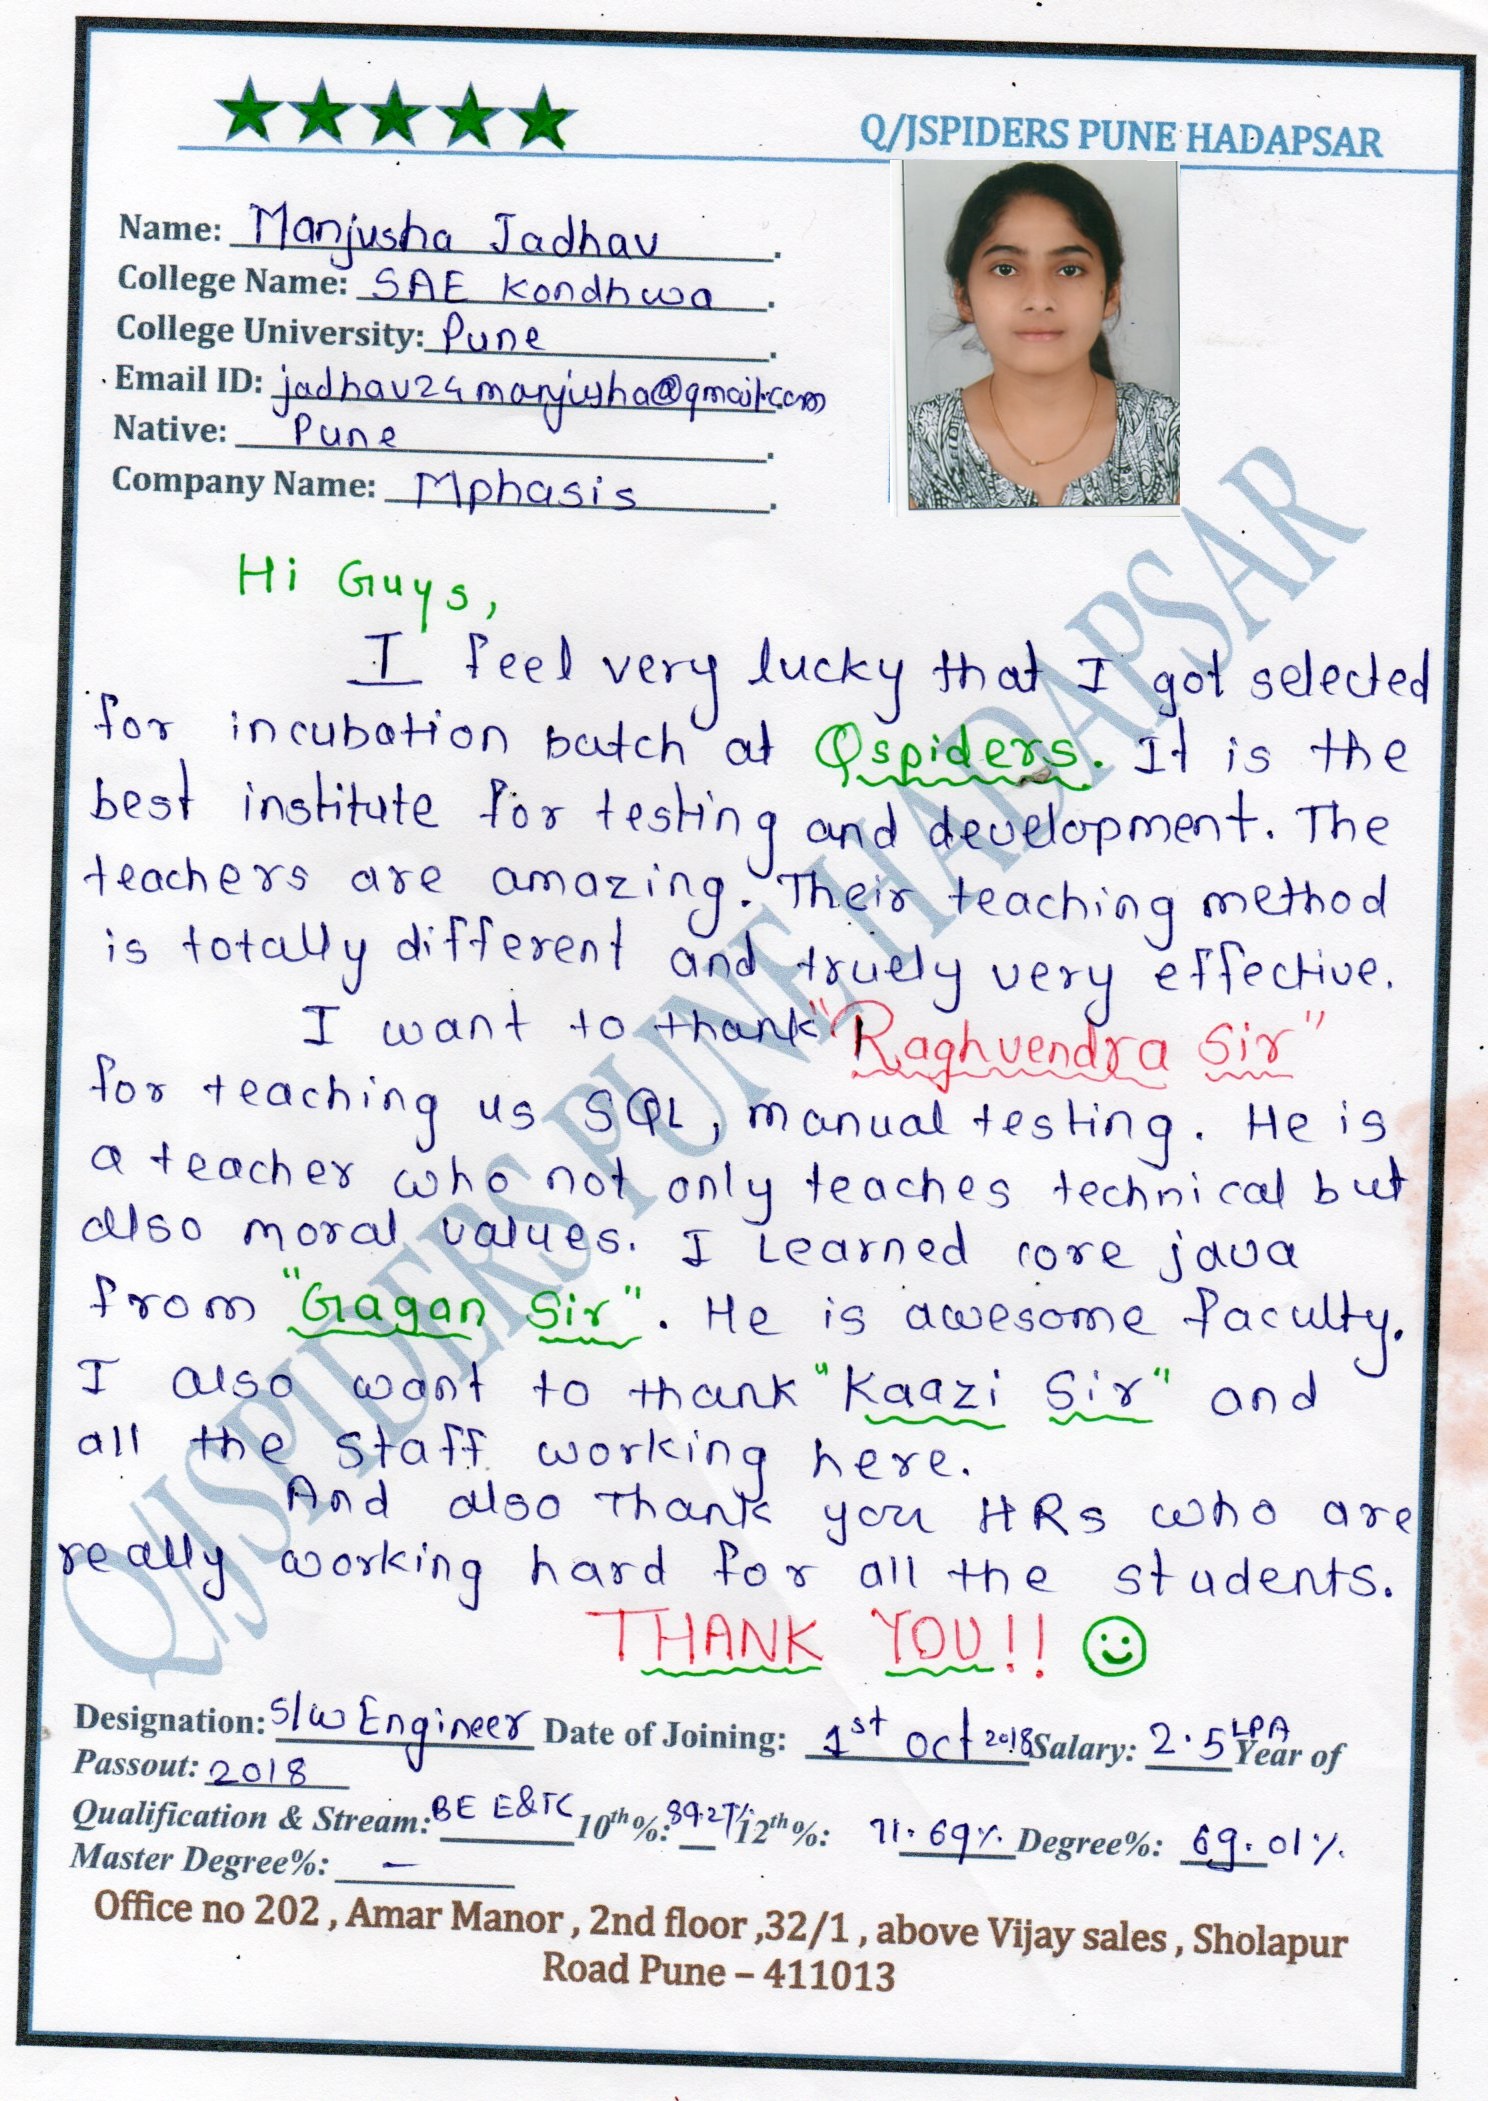 Q/JSPIDERS PUNE HADAPSAR
Name: Manjusha Jadhav.
College Name: SAE Kondhwa.
College University: Pune.
Email ID: jadhav24manjusha@gmail.com
Native: Pune.
Company Name: Mphasis.
Hi Guys,
I feel very lucky that I got selected
for incubation batch at Qspiders. It is the
best institute for testing and development. The
teachers are amazing. Their teaching method
is totally different and truely very effective.
I want to thank "Raghvendra Sir"
for teaching us SQL, manual testing. He is
a teacher who not only teaches technical but
also moral values. I Learned core java
from "Gagan Sir". He is awesome faculty.
I also want to thank "Kaazi Sir" and
all the staff working here.
And also Thank you HRs who are
really working hard for all the students.
THANK YOU!!
Designation: S/W Engineer Date of Joining: 1st Oct 2018 Salary: 2.5 LPA Year of
Passout: 2018
Qualification & Stream: BE E&TC 10th%: 89.27% 12th%: 71.69% Degree%: 69.01%
Master Degree%: —
Office no 202 , Amar Manor , 2nd floor ,32/1 , above Vijay sales , Sholapur
Road Pune – 411013
Q/JSPIDERS PUNE HADAPSAR